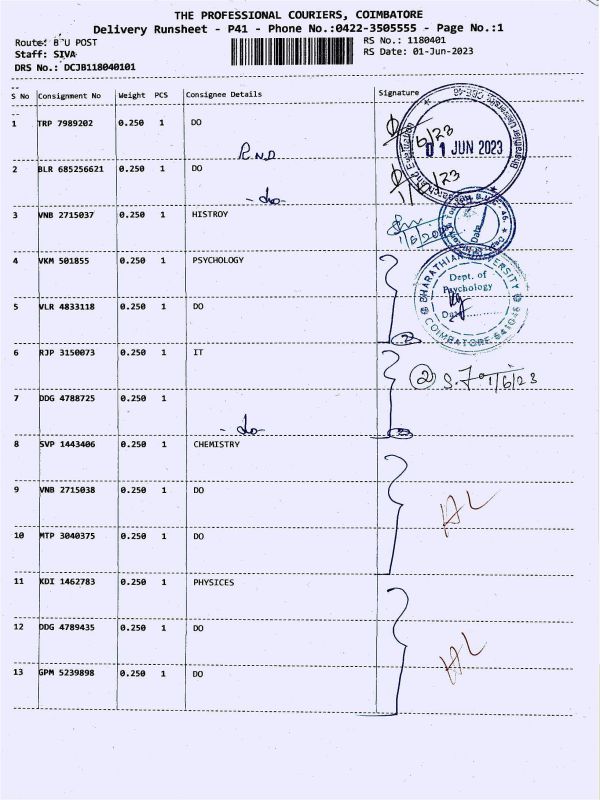 THE PROFESSIONAL COURIERS, COIMBATORE
Delivery Runsheet - P41 - Phone No.:0422-3505555 - Page No.:1
Route: B U POST
RS No.: 1180401
Staff: SIVA
RS Date: 01-Jun-2023
DRS No.: DCJB118040101
S No Consignment No Weight PCS Consignee Details Signature
1 TRP 7989202 0.250 1 DO
R.N.D
01 JUN 2023
2 BLR 685256621 0.250 1 DO
-do-
3 VNB 2715037 0.250 1 HISTROY
1/6/2023
4 VKM 501855 0.250 1 PSYCHOLOGY
BHARATHIAR UNIVERSITY
Dept. of
Psychology
Date
COIMBATORE-641046
5 VLR 4833118 0.250 1 DO
2
6 RJP 3150073 0.250 1 IT
2 1/6/23
7 DDG 4788725 0.250 1
-do-
8 SVP 1443406 0.250 1 CHEMISTRY
9 VNB 2715038 0.250 1 DO
10 MTP 3040375 0.250 1 DO
11 KDI 1462783 0.250 1 PHYSICES
12 DDG 4789435 0.250 1 DO
13 GPM 5239898 0.250 1 DO